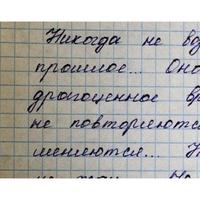 Никогда не воз
прошлое... Оно
драгоценное вр
не повторяются
меняются...